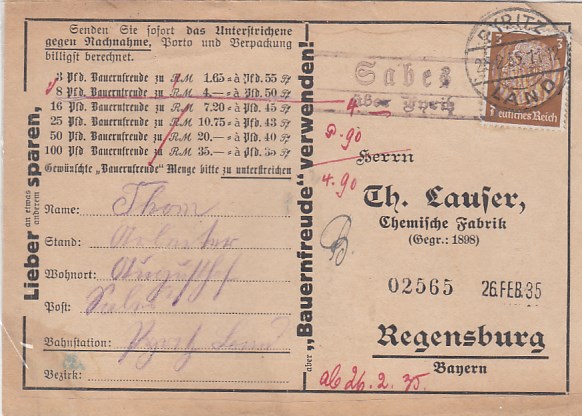 Senden Sie sofort das Unterstrichene
gegen Nachnahme, Porto und Verpackung
billigst berechnet.
3 Pfd. Bauernfreude zu RM 1.65 = à Pfd. 55 Pf
8 Pfd. Bauernfreude zu RM 4.— = à Pfd. 50 Pf
16 Pfd. Bauernfreude zu RM 7.20 = à Pfd. 45 Pf
25 Pfd. Bauernfreude zu RM 10.75 = à Pfd. 43 Pf
50 Pfd. Bauernfreude zu RM 20.— = à Pfd. 40 Pf
100 Pfd. Bauernfreude zu RM 35.— = à Pfd. 35 Pf
Gewünschte „Bauernfreude" Menge bitte zu unterstreichen
Name: Thom
Stand:
Wohnort: Augusthof
Post:
Bahnstation: Pyritz Land
Bezirk:
Lieber an etwas anderem sparen,
aber „Bauernfreude" verwenden!
PYRITZ
LAND
3 3
Deutsches Reich
Sabes
über Pyritz
4.—
P. 90
4.90
Herrn
Th. Lauser,
Chemische Fabrik
(Gegr.: 1898)
02565 26.FEB.35
Regensburg
Bayern
ab 26.2.35.